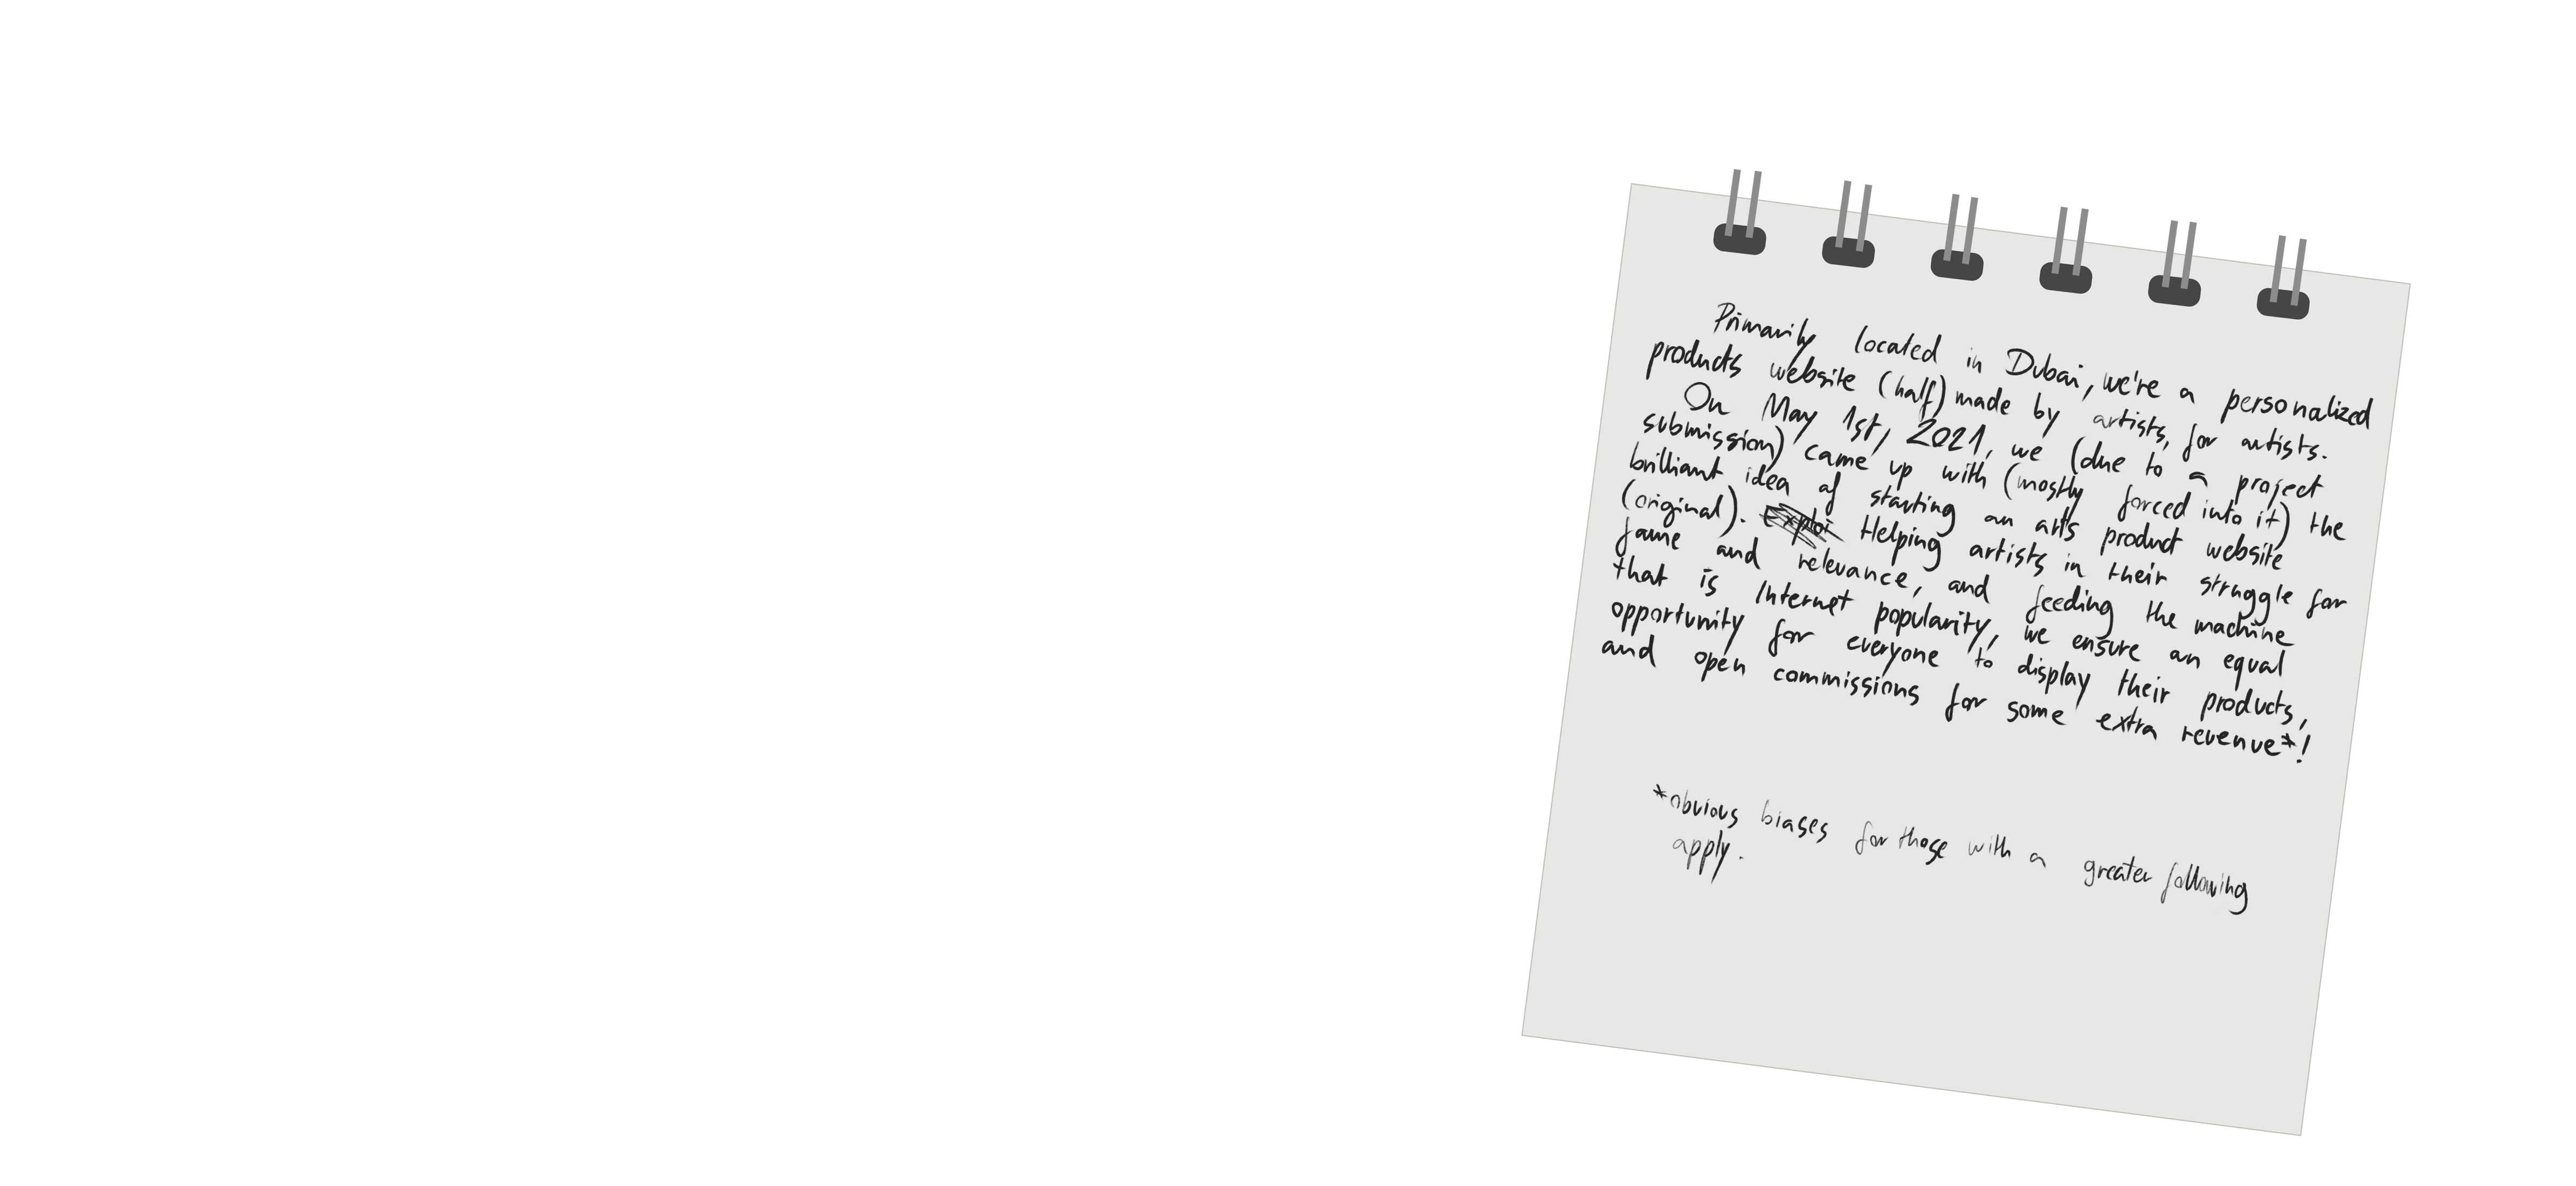 Primarily located in Dubai, we're a personalized
products website (half) made by artists, for artists.
On May 1st, 2021, we (due to a project
submission) came up with (mostly forced into it) the
brilliant idea of starting an arts product website
(original). Exploi Helping artists in their struggle for
fame and relevance, and feeding the machine
that is Internet popularity, we ensure an equal
opportunity for everyone to display their products,
and open commissions for some extra revenue*!
*obvious biases for those with a greater following
apply.